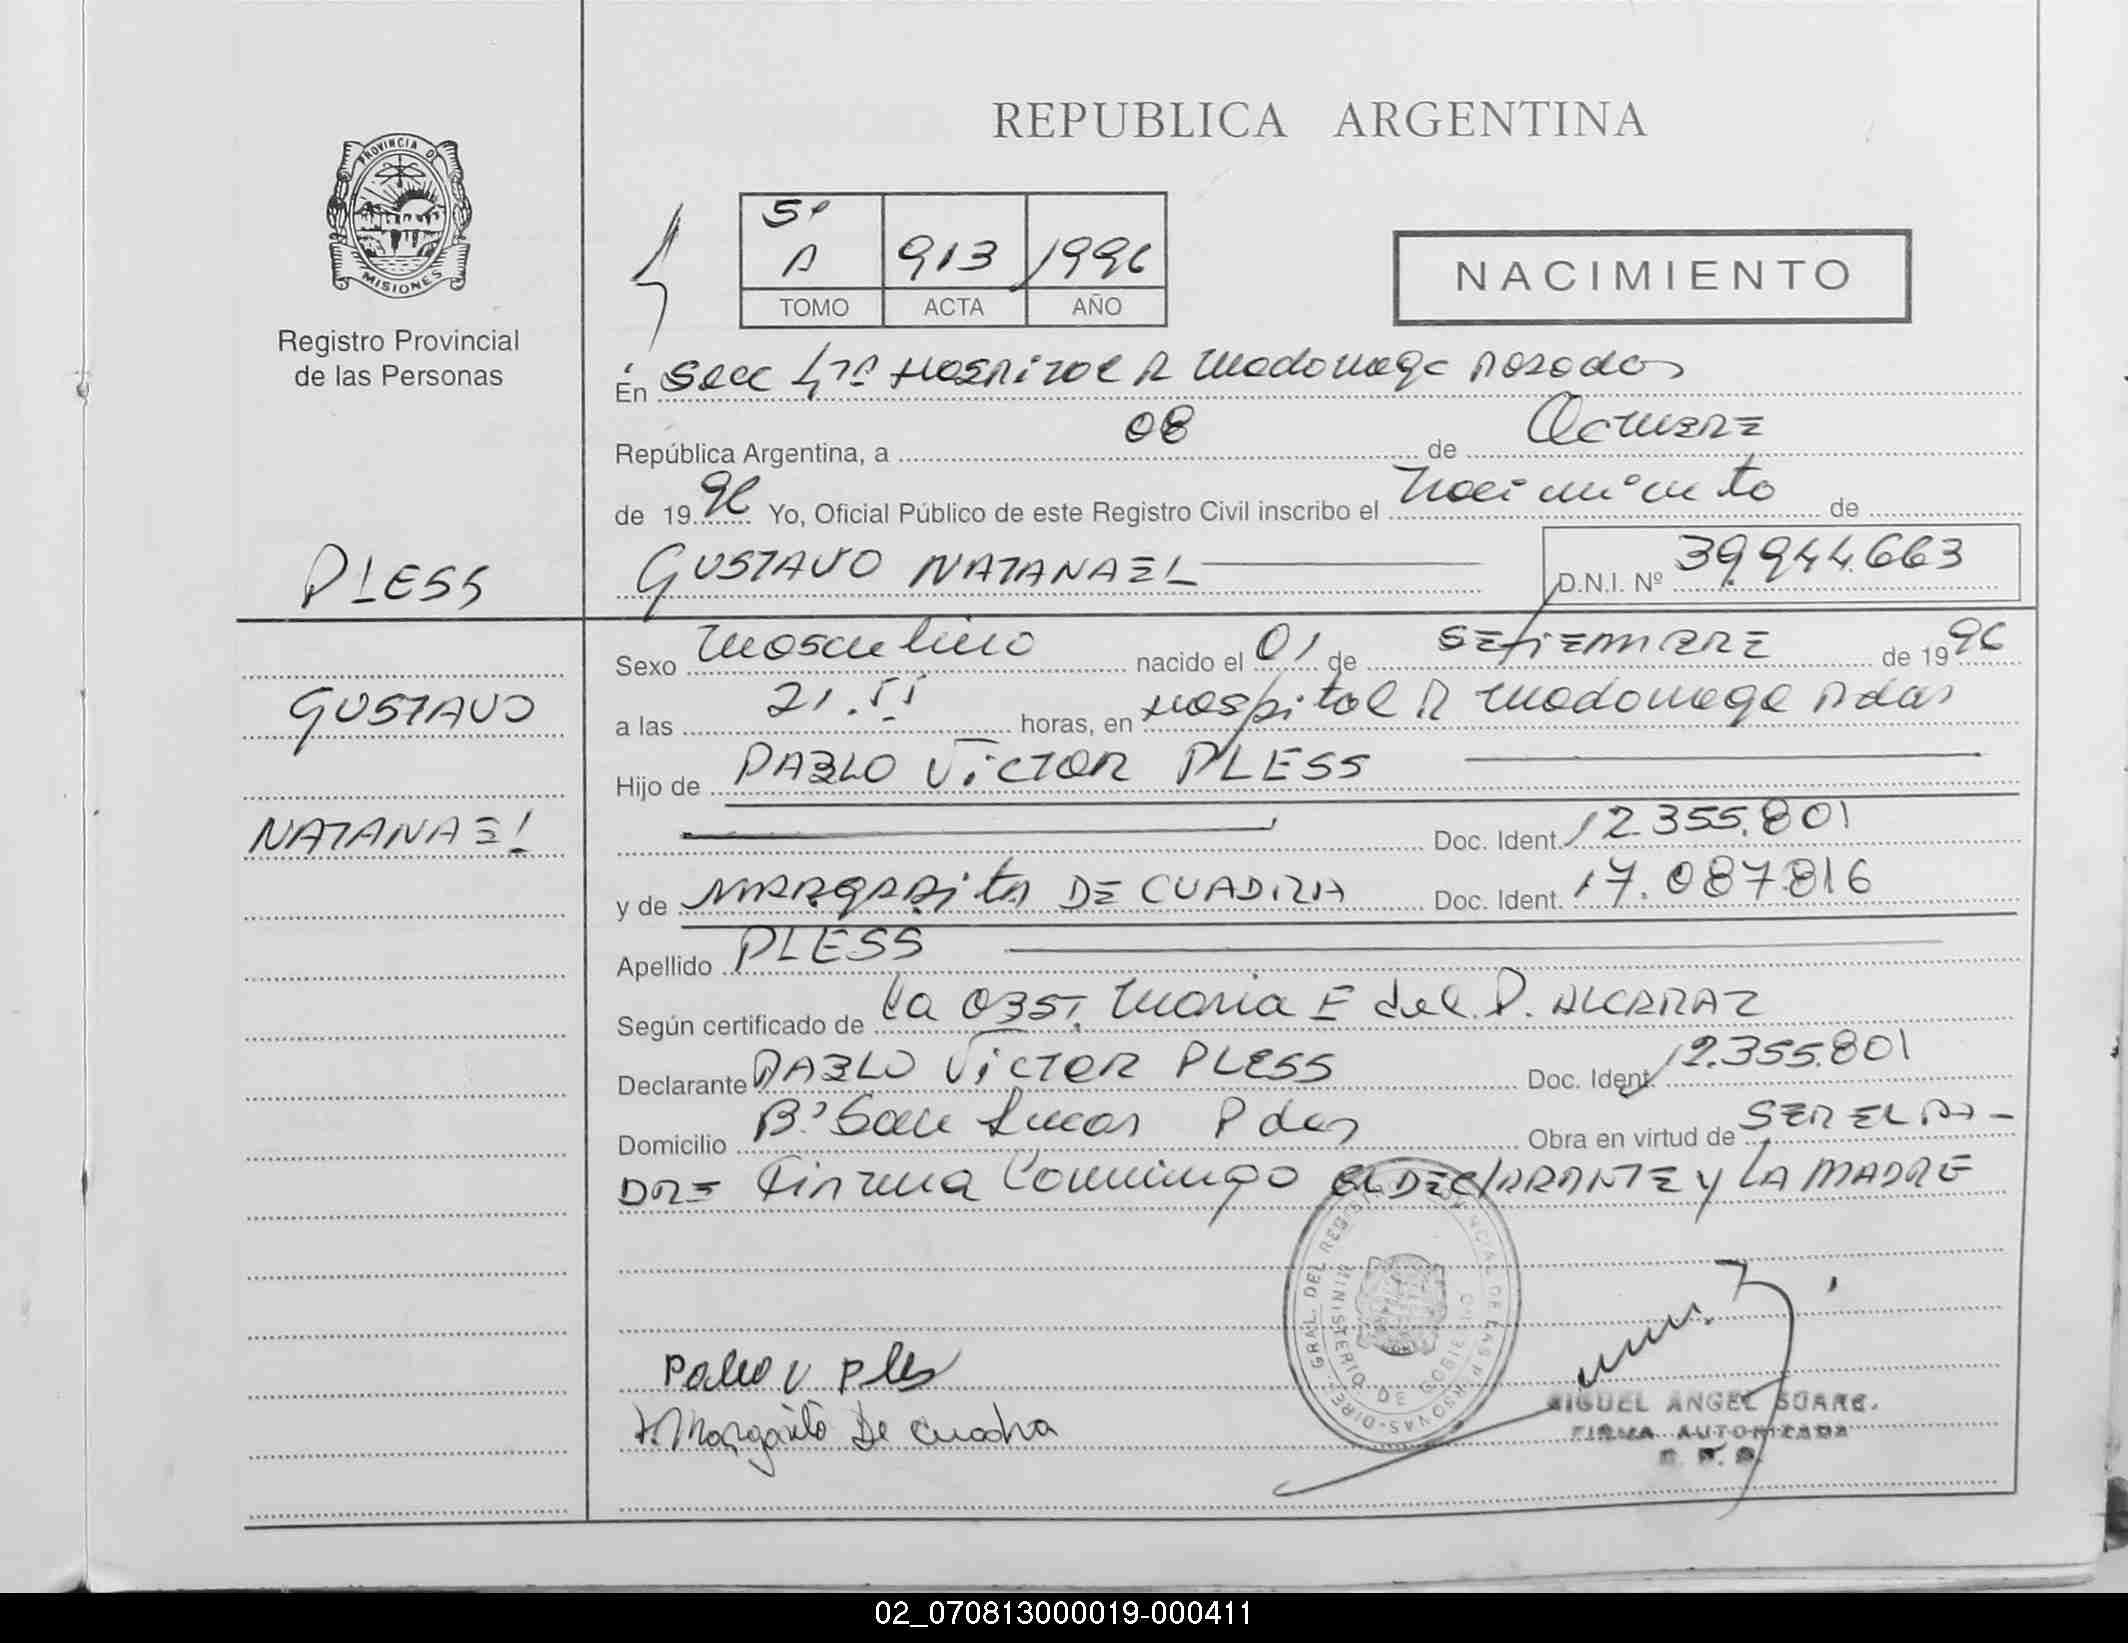 REPUBLICA ARGENTINA
PROVINCIA DE
MISIONES
Registro Provincial
de las Personas
5º
A 913 1996
TOMO ACTA AÑO
NACIMIENTO
En Secc 4ta Hospital R Madariaga Posadas
República Argentina, a 08 de Octubre
de 1996 Yo, Oficial Público de este Registro Civil inscribo el Nacimiento de
PLESS
GUSTAVO NATANAEL
D.N.I. Nº 39.944.663
GUSTAVO
NATANAEL
Sexo Masculino nacido el 01 de SETIEMBRE de 1996
a las 21.55 horas, en Hospital R Madariaga Pdas
Hijo de PABLO VICTOR PLESS
Doc. Ident. 12.355.801
y de MARGARITA DE CUADRA Doc. Ident. 17.087.816
Apellido PLESS
Según certificado de la OBST. Maria E del P. ALCARAZ
Declarante PABLO VICTOR PLESS Doc. Ident. 12.355.801
Domicilio Bº San Lucas Pdas Obra en virtud de SER EL PA-
DRE Firma Conmigo EL DECLARANTE Y LA MADRE
DIREC. GRAL. DEL REGISTRO PROVINCIAL DE LAS PERSONAS
MINISTERIO DE GOBIERNO
Pablo V Pless
Margarita De Cuadra
MIGUEL ANGEL SUARE.
FIRMA AUTORIZADA
02_070813000019-000411